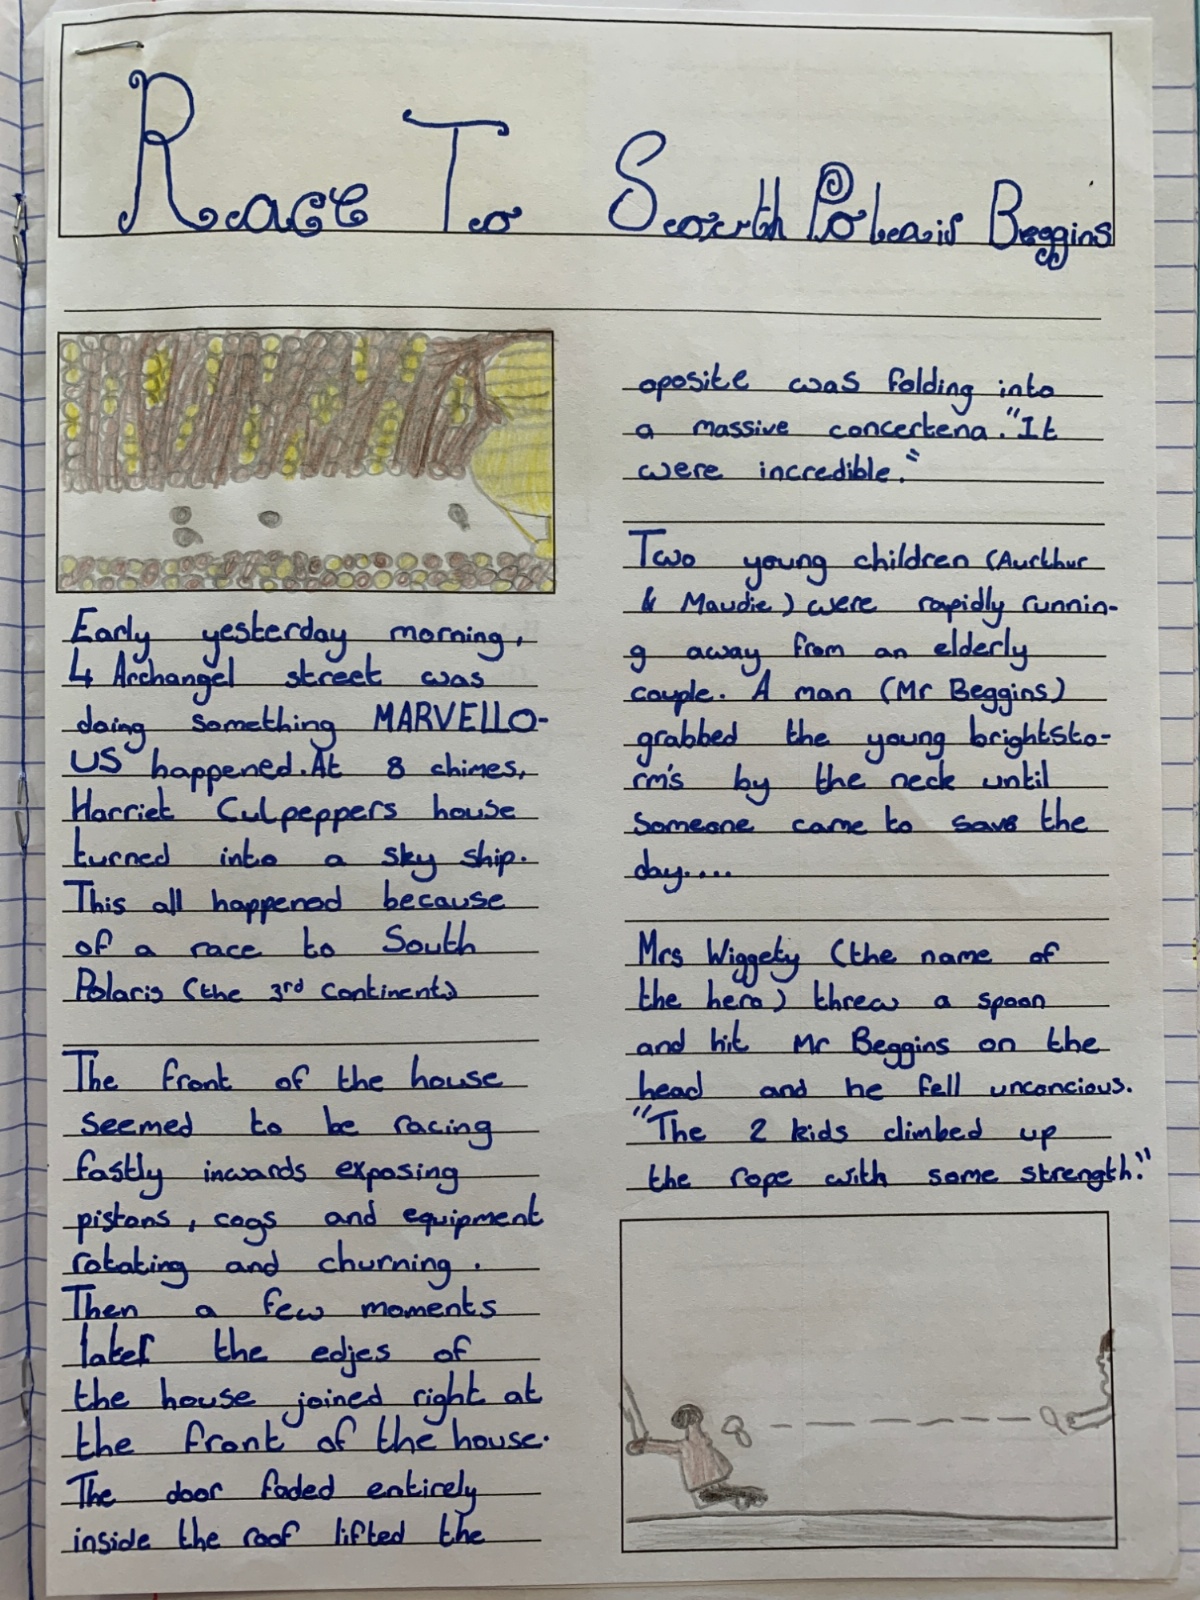 Race To South Polaris Beggins
Early yesterday morning,
4 Archangel street was
doing something MARVELLO-
US happened. At 8 chimes,
Harriet Culpeppers house
turned into a sky ship.
This all happened because
of a race to South
Polaris (the 3rd continent)
The front of the house
seemed to be racing
fastly inwards exposing
pistons, cogs and equipment
rotating and churning.
Then a few moments
later the edjes of
the house joined right at
the front of the house.
The door faded entirely
inside the roof lifted the
oposite was folding into
a massive concertena. "It
were incredible."
Two young children (Aurthur
& Maudie) were rapidly runnin-
g away from an elderly
couple. A man (Mr Beggins)
grabbed the young brightsto-
rm's by the neck until
someone came to save the
day....
Mrs Wiggety (the name of
the hero) threw a spoon
and hit Mr Beggins on the
head and he fell unconcious.
"The 2 kids climbed up
the rope with some strength."